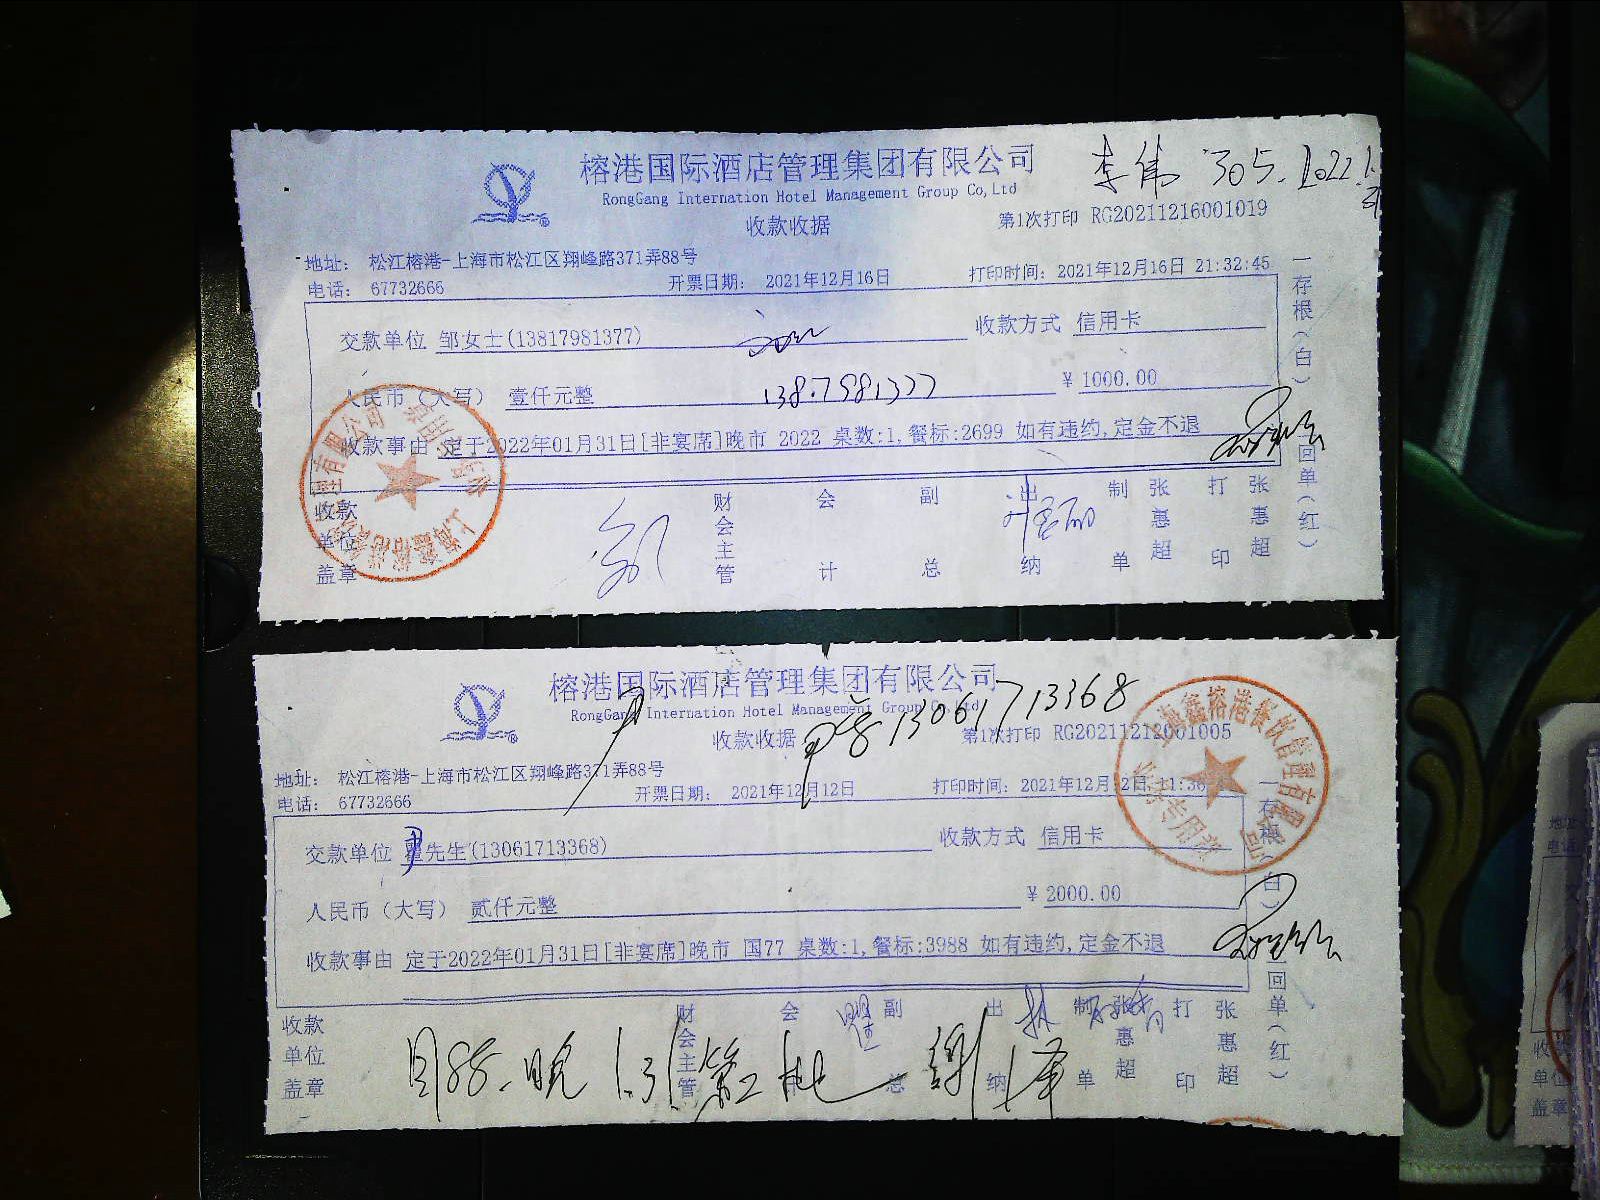 榕港国际酒店管理集团有限公司
李伟 305. 2022.1.31
RongGang Internation Hotel Management Group Co,Ltd
收款收据
第1次打印 RG20211216001019
地址: 松江榕港-上海市松江区翔峰路371弄88号
电话: 67732666
开票日期: 2021年12月16日
打印时间: 2021年12月16日 21:32:45
交款单位 邹女士(13817981377)
收款方式 信用卡
人民币（大写） 壹仟元整
13817981377
¥ 1000.00
收款事由 定于2022年01月31日[非宴席]晚市 2022 桌数:1,餐标:2699 如有违约,定金不退
收款单位盖章
财会主管
会计
副总
出纳
制单
张惠超
打印
张惠超
一存根(白)
回单(红)
榕港国际酒店管理集团有限公司
RongGang Internation Hotel Management Group Co,Ltd
13061713368
收款收据
第1次打印 RG20211212001005
地址: 松江榕港-上海市松江区翔峰路371弄88号
电话: 67732666
开票日期: 2021年12月12日
打印时间: 2021年12月12日 11:36
交款单位 先生(13061713368)
收款方式 信用卡
人民币（大写） 贰仟元整
¥ 2000.00
收款事由 定于2022年01月31日[非宴席]晚市 国77 桌数:1,餐标:3988 如有违约,定金不退
收款单位盖章
财会主管
会
副总
出纳
制单
张惠超
打印
张惠超
一存根(白)
二回单(红)
上海鑫榕港餐饮管理有限公司
业务专用章
晚 1.31
谢